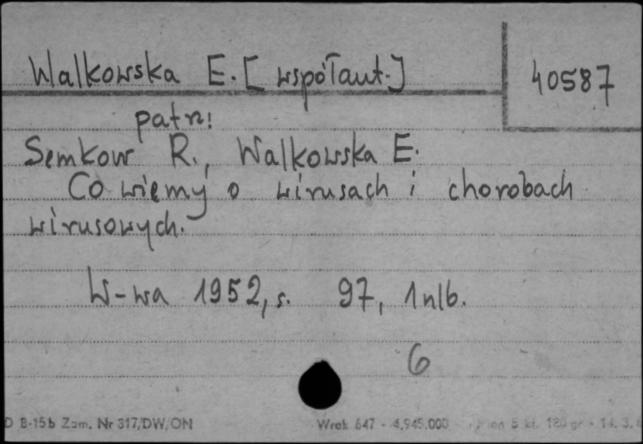 Walkowska E. [współaut.]
40587
patrz:
Semkow R., Walkowska E.
Co wiemy o wirusach i chorobach
wirusowych.
W-wa 1952, s. 97, 1 nlb.
6
D B-15b Zam. Nr 317/DW/ON
Wrok 647 - 4,945.000 5 kl. 180 gr - 14. 3.